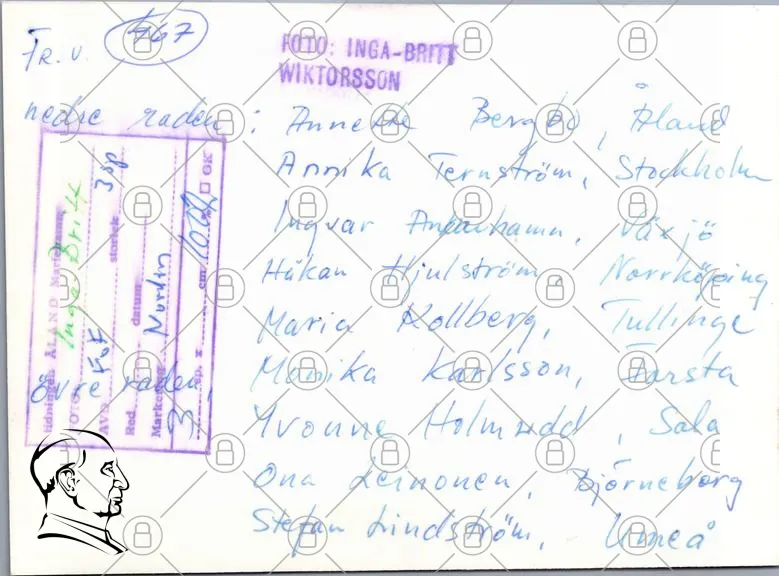 Fr. v. 767
FOTO: INGA-BRITT
WIKTORSSON
nedre raden : Annette Bergbo, Åland
Annika Ternström, Stockholm
Ingvar Växjö
Håkan Hjulström, Norrköping
Maria Kollberg, Tullinge
övre raden, Monika Karlsson, Farsta
Yvonne Holmudd, Sala
Ona Leinonen, Björneborg
Stefan Lindström, Umeå
Tidningen ÅLAND Mariehamn
FOTO Inga Britt
AVD storlek 3 sp
Red. datum
Markering Norden
3 sp. x cm 10.02 OK